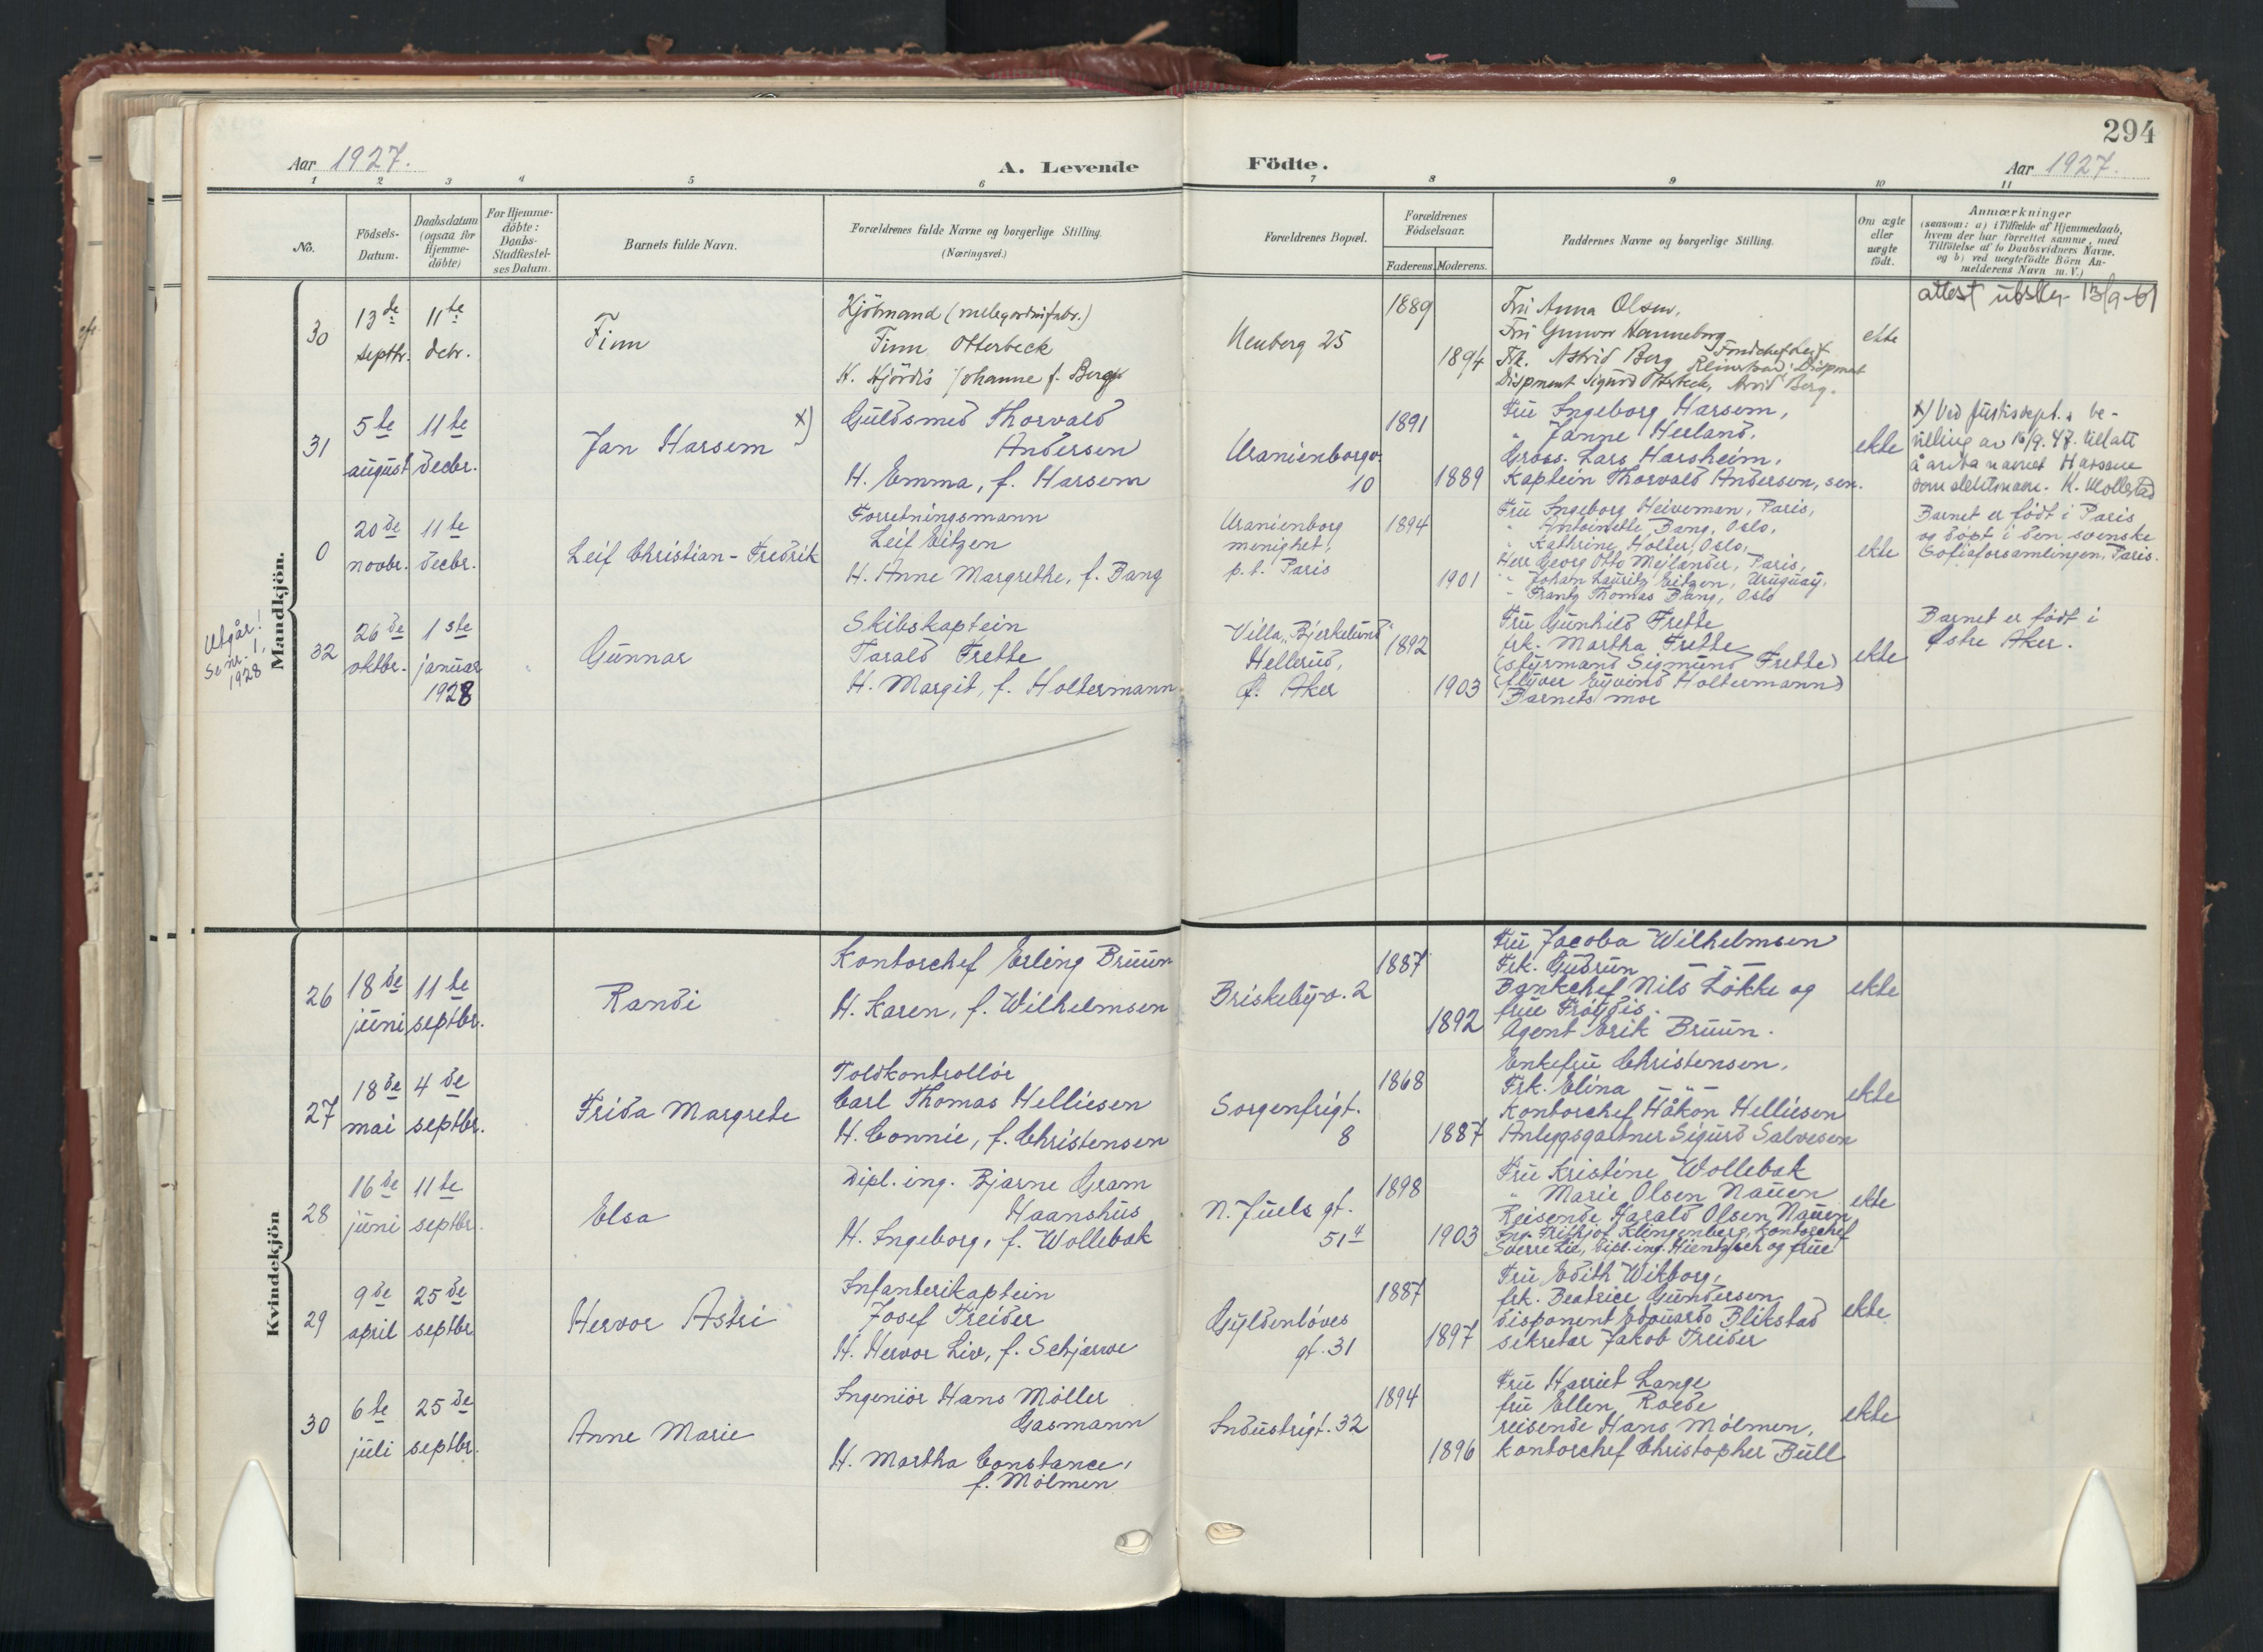 294
Aar 1927.
A. Levende
Födte.
Aar 1927.
1 2 3 4 5 6 7 8 9 10 11
No.
Födsels-
Datum.
Daabsdatum
(ogsaa for
Hjemme-
döbte)
For Hjemme-
döbte:
Daabs-
Stadfæstel-
ses Datum.
Barnets fulde Navn.
Forældrenes fulde Navne og borgerlige Stilling.
(Næringsvei.)
Forældrenes Bopæl.
Forældrenes
Födselsaar.
Faderens. Moderens.
Faddernes Navne og borgerlige Stilling.
Om ægte
eller
uægte
födt.
Anmærkninger
(saasom: a) i Tilfælde af Hjemmedaab,
hvem der har forrettet samme, med
Tilföielse af to Daabsvidners Navne,
og b) ved uægtefödte Börn An-
melderens Navn m. V.)
Mandkjön.
30
13de
septbr.
11te
debr.
Finn
Kjöbmand
Finn Otterbeck
H. Hjördis Johanne f. Berg
Neuberg 25
1889
1894
Fru Anna Olsen,
Fru Gunvor Hanneborg
Frk. Astrid Berg Fondchef Leif
Disponent Sigurd Otterbeck, Arvid Berg.
ekte
attest utsten 13/9-61
31
5te
august
11te
decbr.
Jan Harsem
x)
Guldsmed Thorvald
Andersen
H. Emma, f. Harsem
Uranienborgv.
10
1891
1889
Fru Ingeborg Harsem,
" Janne Herland,
Gross. Lars Harsheim,
Kaptein Thorvald Andersen, sen.
ekte
x) Ved Justisdept.s be-
villing av 16/9.47. tillatt
å anta navnet Harsem
som slektsnavn. K. Mollestad
0
20de
novbr.
11te
decbr.
Leif Christian-Fredrik
Forretningsmann
Leif Eitzen
H. Anne Margrethe, f. Bang
Uranienborg
menighet,
p.t. Paris
1894
1901
Fru Ingeborg Heiveman, Paris,
" Antoinette Bang, Oslo,
" Kathrine Holter, Oslo,
Herr Georg Otto Mejlander, Paris,
" Johan Lauritz Eitzen, Uruguay,
" Frantz Thomas Bang, Oslo
ekte
Barnet er född i Paris
og döpt i den svenske
Sofiaforsamlingen, Paris.
Utgår!
Se nr. 1,
1928
32
26de
oktbr.
1ste
januar
1928
Gunnar
Skibskaptein
Tarald Frette
H. Margit, f. Holtermann
Villa "Bjerkelund"
Hellerud,
Ö. Aker
1892
1903
Fru Gunhild Frette
frk. Martha Frette
(styrmand Sigmund Frette)
(flyver Eyvind Holtermann)
Barnets mor
ekte
Barnet er född i
Østre Aker.
Kvindekjön
26
18de
juni
11te
septbr.
Randi
Kontorchef Erling Bruun
H. Karen, f. Wilhelmsen
Briskebyv. 2
1887
1892
Fru Jacoba Wilhelmsen
Frk. Gudrun — " —
Bankchef Nils Lökke og
frue Fröydis.
Agent Erik Bruun.
ekte
27
18de
mai
4de
septbr.
Frida Margrete
Toldkontrollör
Carl Thomas Helliesen
H. Connie, f. Christensen
Sorgenfrigt.
8
1868
1887
Enkefru Christensen,
Frk. Elina — " —
Kontorchef Håkon Helliesen
Anleggsgartner Sigurd Salvesen
ekte
28
16de
juni
11te
septbr.
Elsa
Dipl. ing. Bjarne Gram
Haanshus
H. Ingeborg, f. Wollebæk
N. Juels gt.
51 4
1898
1903
Fru Kristine Wollebæk
" Marie Olsen Nauen
Reisende Harald Olsen Nauen
Ing. Frithjof Klingenberg, Kontorchef
Sverre Lie, Dipl. ing. Hientzsch og frue
ekte
29
9de
april
25de
septbr
Hervor Astri
Infanterikaptein
Josef Treider
H. Hervor Liv, f. Schjarve
Gyldenlöves
gt. 31
1887
1897
Fru Edith Wikborg,
frk. Beatrice Gundersen,
disponent Edouard Blikstad
sekretær Jakob Treider
ekte
30
6te
juli
25de
septbr.
Anne Marie
Ingeniör Hans Möller
Gasmann
H. Martha Constance,
f. Mölmen
Industrigt. 32
1894
1896
Fru Harriet Lange
fru Ellen Roede
reisende Hans Mölmen,
kontorchef Christopher Bull
ekte